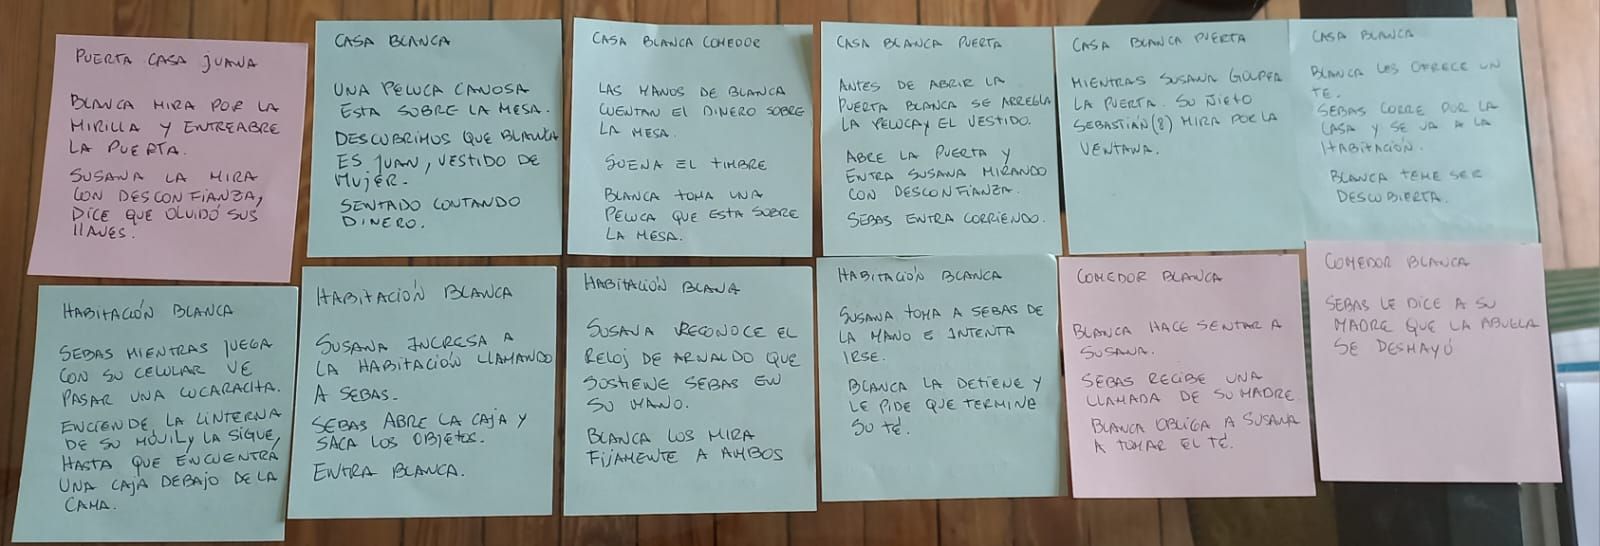 PUERTA CASA JUANA
BLANCA MIRA POR LA
MIRILLA Y ENTREABRE
LA PUERTA.
SUSANA LA MIRA
CON DESCONFIANZA,
DICE QUE OLVIDÓ SUS
LLAVES.
CASA BLANCA
UNA PELUCA CANOSA
ESTA SOBRE LA MESA.
DESCUBRIMOS QUE BLANCA
ES JUAN, VESTIDO DE
MUJER.
SENTADO CONTANDO
DINERO.
CASA BLANCA COMEDOR
LAS MANOS DE BLANCA
CUENTAN EL DINERO SOBRE
LA MESA.
SUENA EL TIMBRE
BLANCA TOMA UNA
PELUCA QUE ESTA SOBRE
LA MESA.
CASA BLANCA PUERTA
ANTES DE ABRIR LA
PUERTA BLANCA SE ARREGLA
LA PELUCA Y EL VESTIDO.
ABRE LA PUERTA Y
ENTRA SUSANA MIRANDO
CON DESCONFIANZA.
SEBAS ENTRA CORRIENDO.
CASA BLANCA PUERTA
MIENTRAS SUSANA GOLPEA
LA PUERTA. SU NIETO
SEBASTIÁN (8) MIRA POR LA
VENTANA.
CASA BLANCA
BLANCA LES OFRECE UN
TE.
SEBAS CORRE POR LA
CASA Y SE VA A LA
HABITACIÓN.
BLANCA TEME SER
DESCUBIERTA.
HABITACIÓN BLANCA
SEBAS MIENTRAS JUEGA
CON SU CELULAR VE
PASAR UNA CUCARACHA.
ENCIENDE LA LINTERNA
DE SU MÓVIL Y LA SIGUE,
HASTA QUE ENCUENTRA
UNA CAJA DEBAJO DE LA
CAMA.
HABITACIÓN BLANCA
SUSANA INGRESA A
LA HABITACIÓN LLAMANDO
A SEBAS.
SEBAS ABRE LA CAJA Y
SACA LOS OBJETOS.
ENTRA BLANCA.
HABITACIÓN BLANA
SUSANA RECONOCE EL
RELOJ DE ARNALDO QUE
SOSTIENE SEBAS EN
SU MANO.
BLANCA LOS MIRA
FIJAMENTE A AMBOS
HABITACIÓN BLANCA
SUSANA TOMA A SEBAS DE
LA MANO E INTENTA
IRSE.
BLANCA LA DETIENE Y
LE PIDE QUE TERMINE
SU TÉ.
COMEDOR BLANCA
BLANCA HACE SENTAR A
SUSANA.
SEBAS RECIBE UNA
LLAMADA DE SU MADRE.
BLANCA OBLIGA A SUSANA
A TOMAR EL TÉ.
COMEDOR BLANCA
SEBAS LE DICE A SU
MADRE QUE LA ABUELA
SE DESMAYÓ